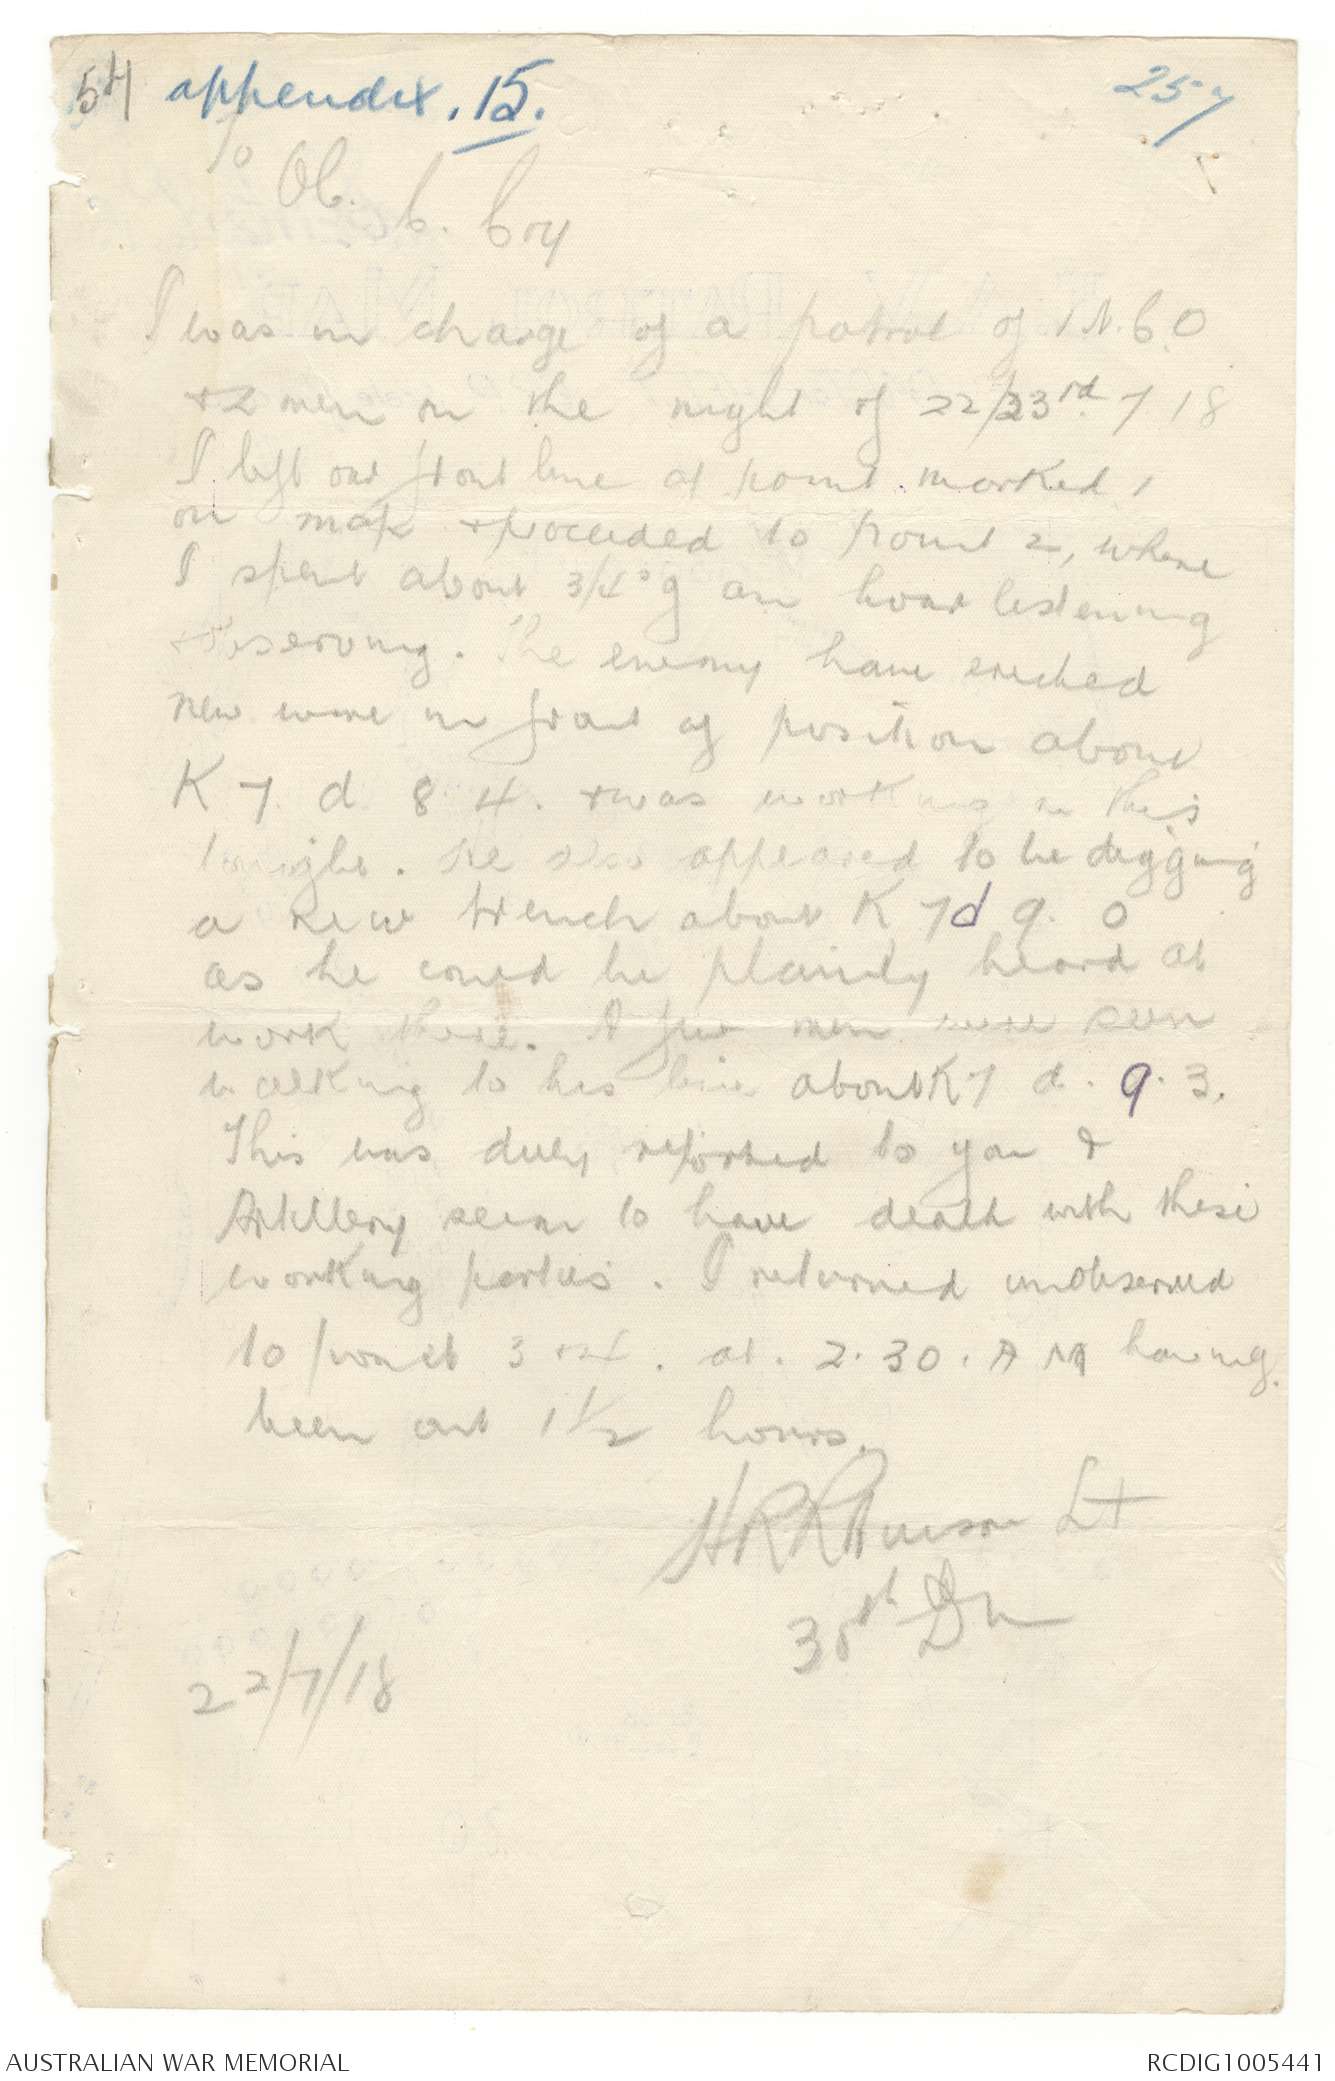 54 appendix. 15.
257
To
OC. C. Coy
I was in charge of a patrol of 1 N.C.O
+ 2 men on the night of 22/23rd 7 18
I left our front line at point marked 1
on map + proceeded to point 2, where
I spent about 3/4 of an hour listening
+ observing. The enemy have erected
new wire in front of position about
K 7 d 8 4. + was working on this
tonight. He also appeared to be digging
a new trench about K 7d 9. 0
as he could be plainly heard at
work there. A few men were seen
walking to his line about K 7 d. 9. 3.
This was duly reported to you &
Artillery seem to have dealt with these
working parties. I returned unobserved
to point 3 + 4. at. 2.30. A M having
been out 1 1/2 hours.
Lt
Bn
22/7/18
AUSTRALIAN WAR MEMORIAL
RCDIG1005441